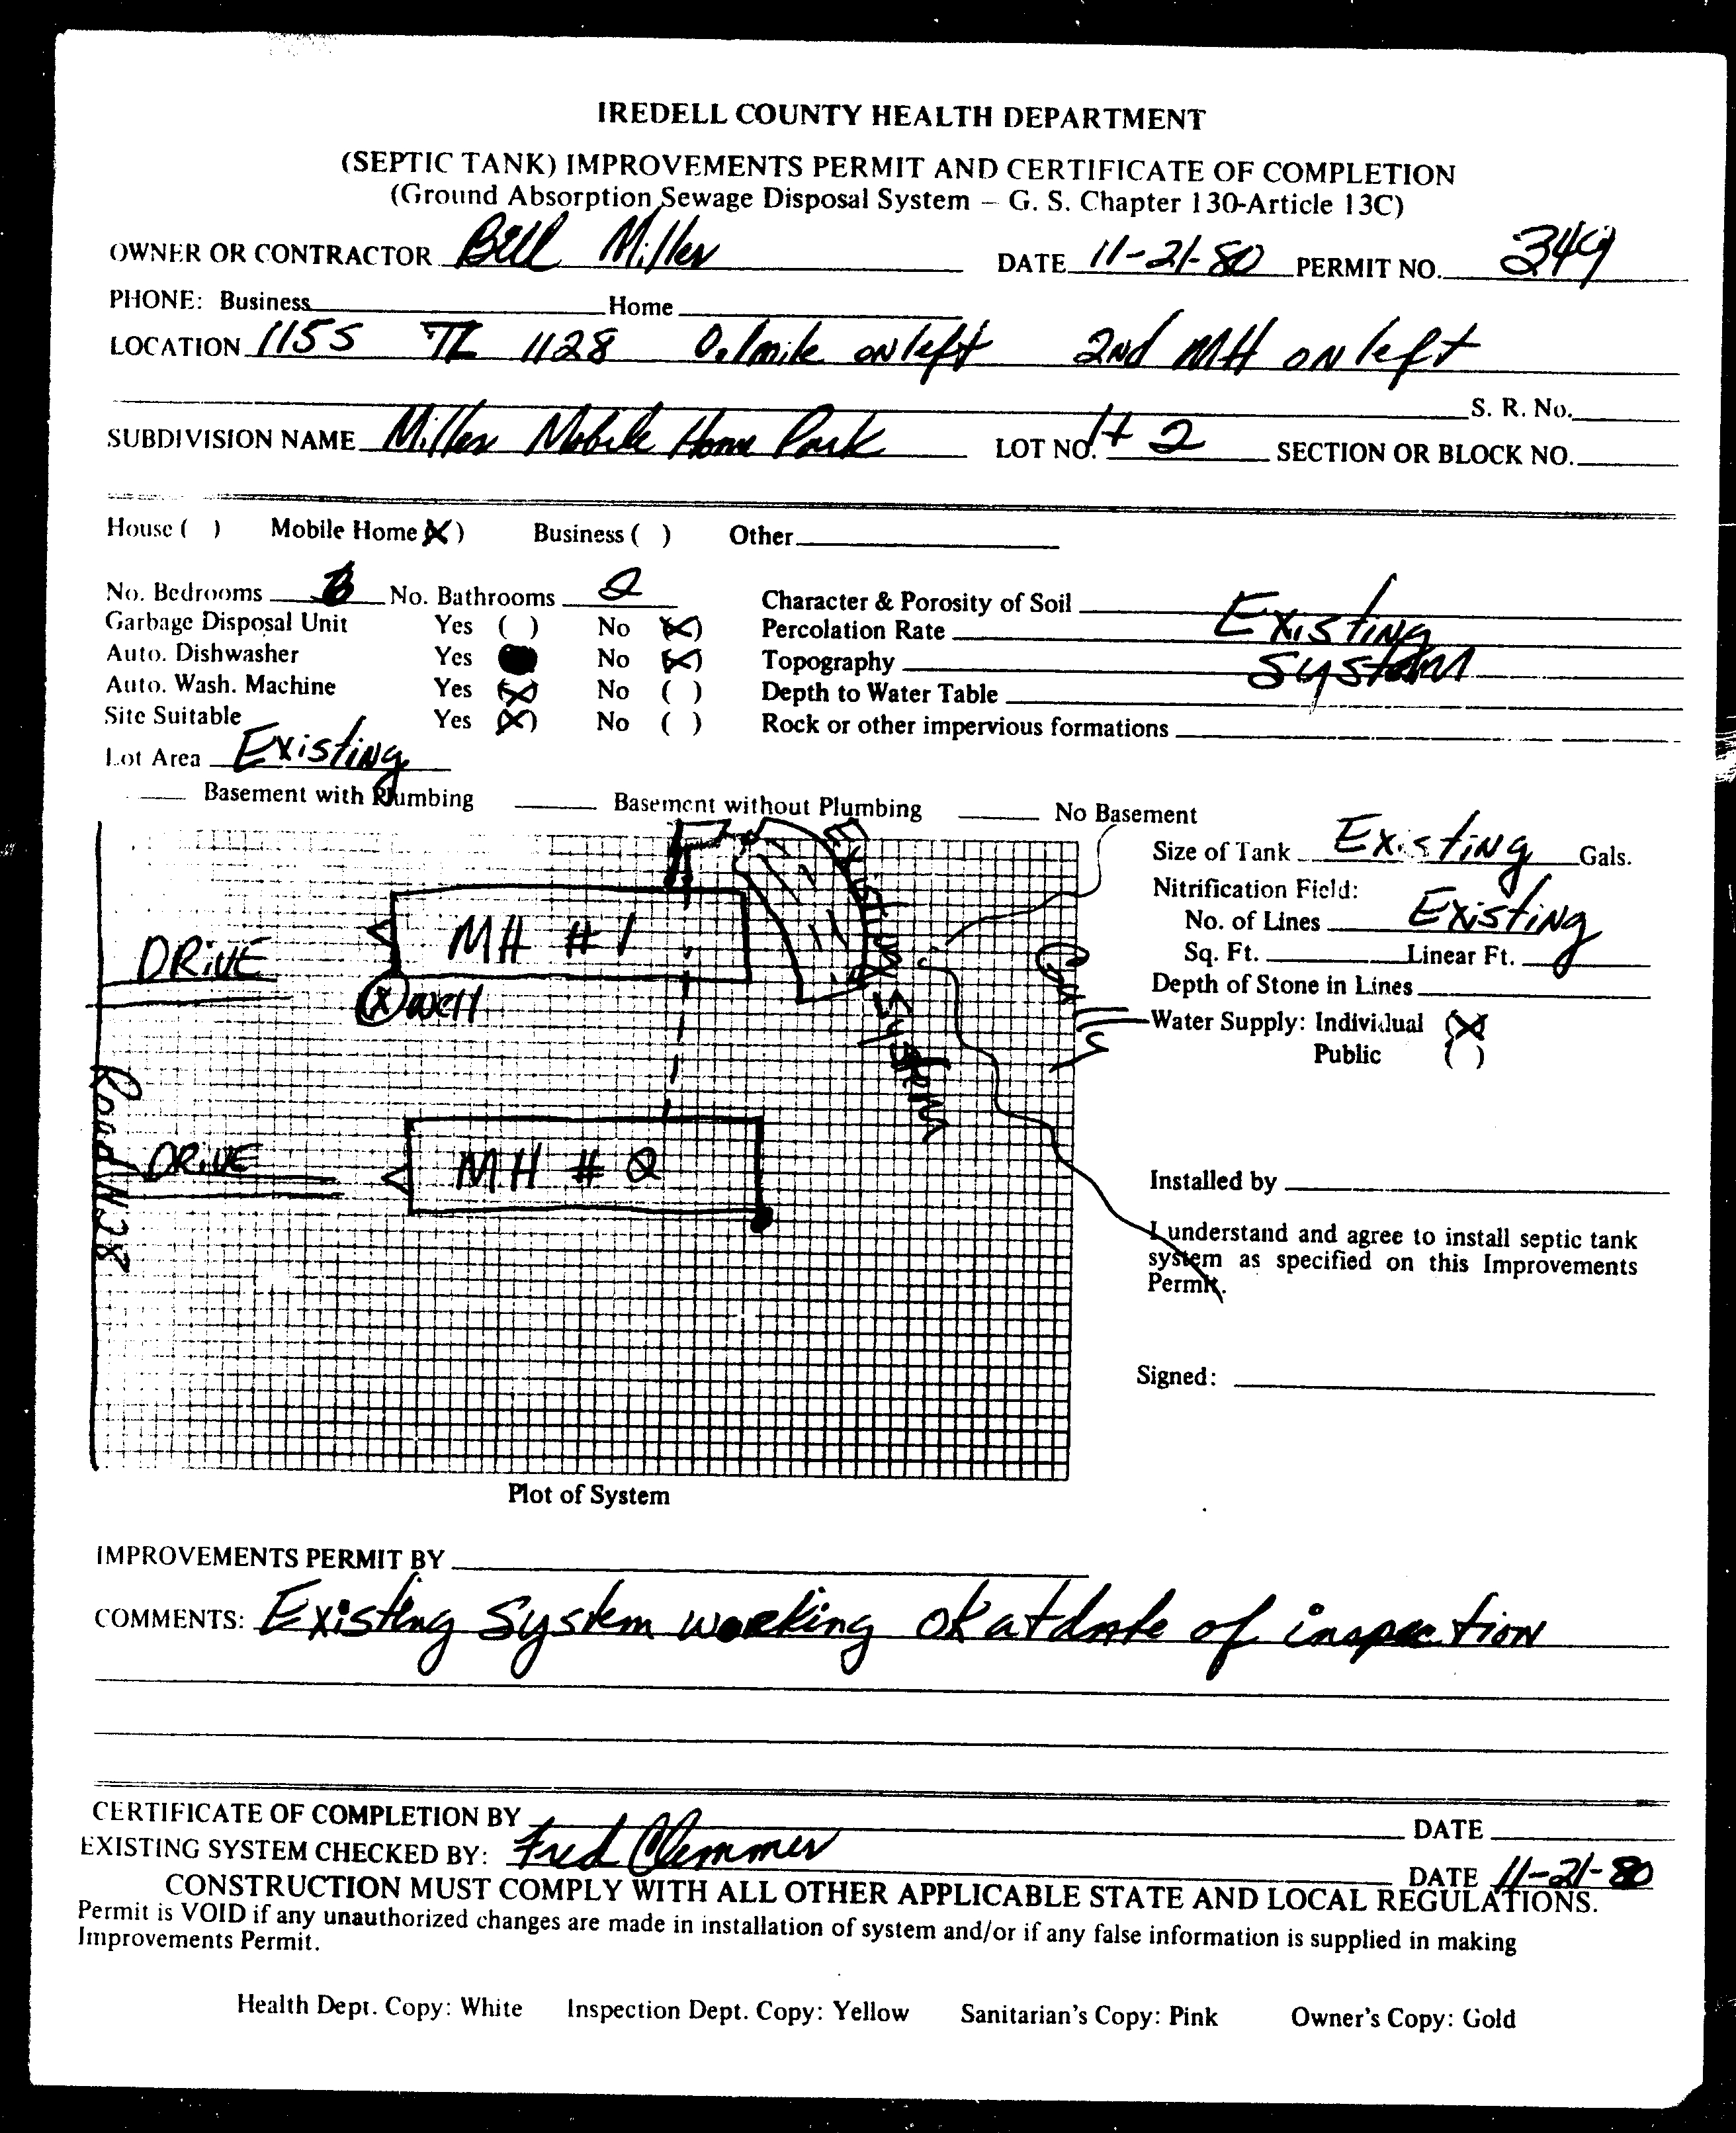 IREDELL COUNTY HEALTH DEPARTMENT
(SEPTIC TANK) IMPROVEMENTS PERMIT AND CERTIFICATE OF COMPLETION
(Ground Absorption Sewage Disposal System – G. S. Chapter 130-Article 13C)
OWNER OR CONTRACTOR Bill Miller DATE 11-21-80 PERMIT NO. 349
PHONE: Business Home
LOCATION 1155 TL 1128 0.1 mile on left 2nd MH on left
S. R. No.
SUBDIVISION NAME Miller Mobile Home Park LOT NO. 1+2 SECTION OR BLOCK NO.
House ( ) Mobile Home (X) Business ( ) Other
No. Bedrooms No. Bathrooms 2 Character & Porosity of Soil Existing
Garbage Disposal Unit Yes ( ) No (X) Percolation Rate
Auto. Dishwasher Yes No (X) Topography System
Auto. Wash. Machine Yes (X) No ( ) Depth to Water Table
Site Suitable Yes (X) No ( ) Rock or other impervious formations
Lot Area Existing
Basement with Plumbing Basement without Plumbing No Basement
Size of Tank Existing Gals.
Nitrification Field:
No. of Lines Existing
Sq. Ft. Linear Ft.
Depth of Stone in Lines
Water Supply: Individual (X)
Public ( )
Existing System
MH #1
DRIVE
(X) well
Road 1128
DRIVE
MH #2
Installed by
I understand and agree to install septic tank
system as specified on this Improvements
Permit.
Signed:
Plot of System
IMPROVEMENTS PERMIT BY
COMMENTS: Existing System working ok at date of inspection
CERTIFICATE OF COMPLETION BY DATE
EXISTING SYSTEM CHECKED BY: Fred Clemmer DATE 11-21-80
CONSTRUCTION MUST COMPLY WITH ALL OTHER APPLICABLE STATE AND LOCAL REGULATIONS.
Permit is VOID if any unauthorized changes are made in installation of system and/or if any false information is supplied in making
Improvements Permit.
Health Dept. Copy: White Inspection Dept. Copy: Yellow Sanitarian's Copy: Pink Owner's Copy: Gold